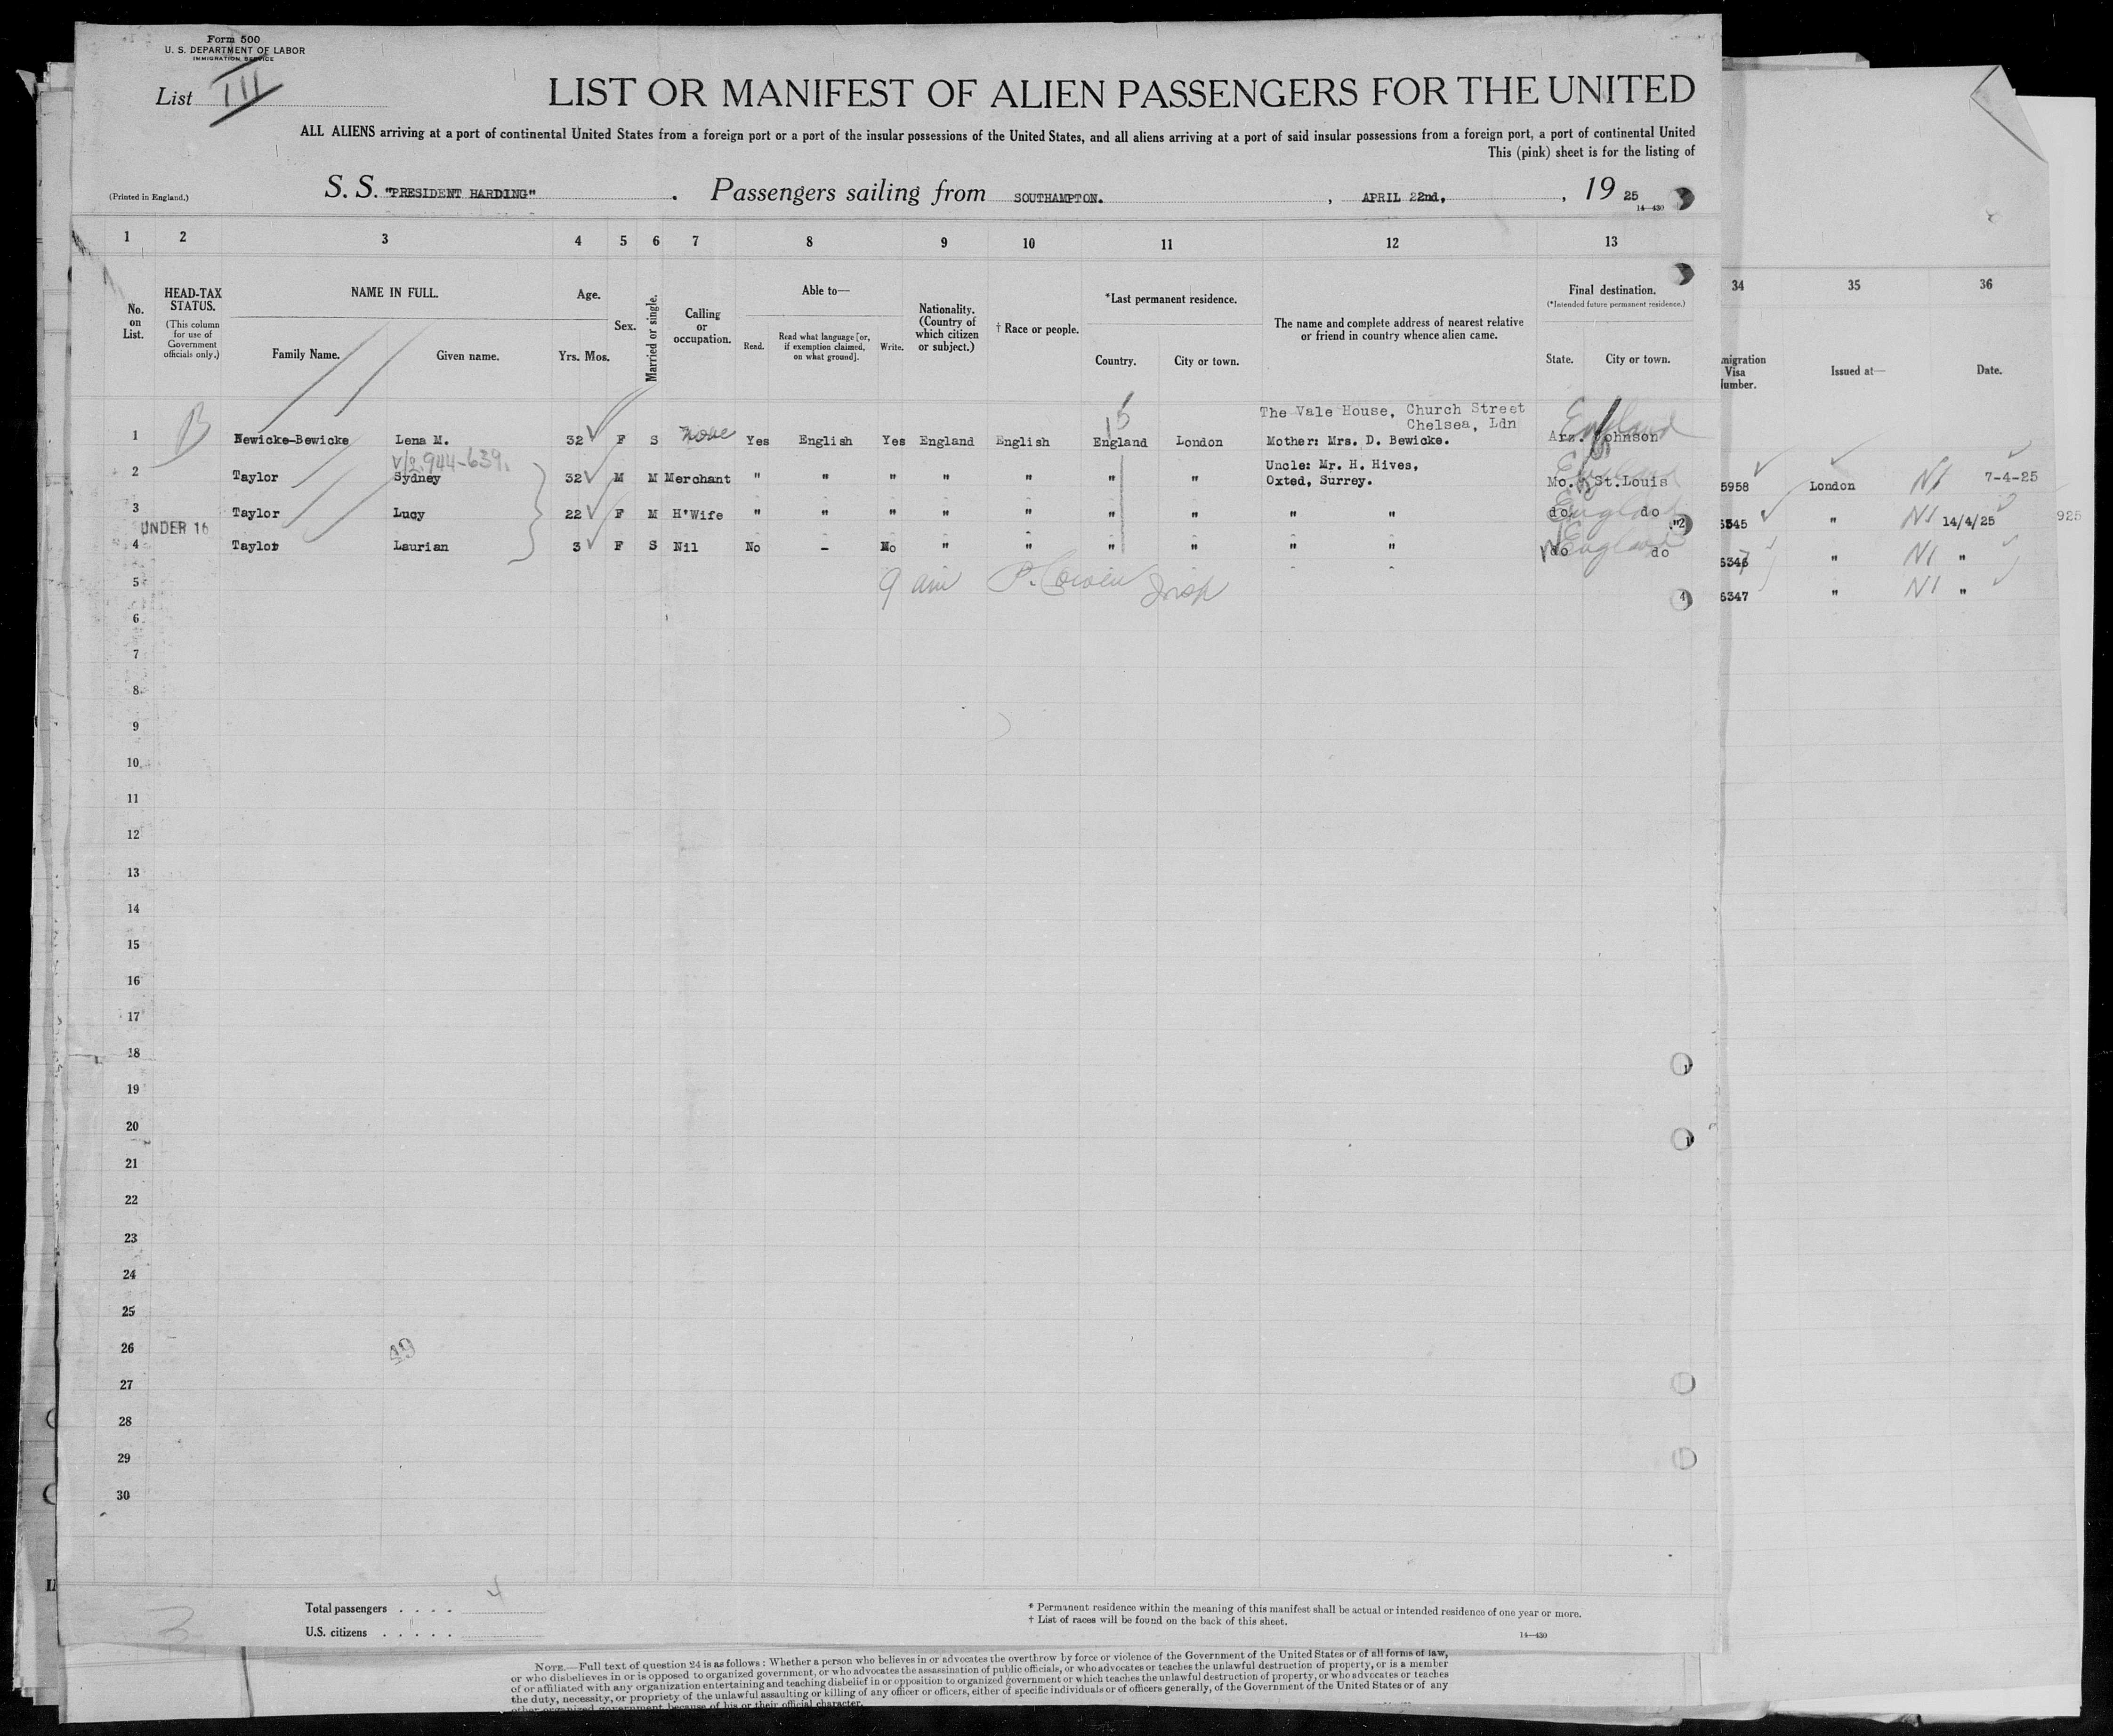 Form 500
U. S. DEPARTMENT OF LABOR
IMMIGRATION SERVICE
List III
LIST OR MANIFEST OF ALIEN PASSENGERS FOR THE UNITED
ALL ALIENS arriving at a port of continental United States from a foreign port or a port of the insular possessions of the United States, and all aliens arriving at a port of said insular possessions from a foreign port, a port of continental United
This (pink) sheet is for the listing of
(Printed in England.)
S. S. "PRESIDENT HARDING" . Passengers sailing from SOUTHAMPTON. , APRIL 22nd, , 19 25
14—430
1 2 3 4 5 6 7 8 9 10 11 12 13
34 35 36
No. on List.
HEAD-TAX STATUS.
(This column for use of Government officials only.)
NAME IN FULL.
Family Name. Given name.
Age.
Yrs. Mos.
Sex.
Married or single.
Calling or occupation.
Able to—
Read.
Read what language [or, if exemption claimed, on what ground].
Write.
Nationality. (Country of which citizen or subject.)
† Race or people.
*Last permanent residence.
Country. City or town.
The name and complete address of nearest relative or friend in country whence alien came.
Final destination.
(*Intended future permanent residence.)
State. City or town.
migration Visa umber.
Issued at—
Date.
B
The Vale House, Church Street
Chelsea, Ldn
England
1 Bewicke-Bewicke Lena M. 32 F S None Yes English Yes England English England London Mother: Mrs. D. Bewicke. Arz. Johnson
V/o 944-639.
Uncle: Mr. H. Hives,
2 Taylor Sydney 32 M M Merchant " " " " " " " Oxted, Surrey. Mo. St.Louis England
5958 London N1 7-4-25
3 Taylor Lucy 22 F M H'Wife " " " " " " " " " do. do England
6345 " N1 14/4/25
925
UNDER 16
4 Taylor Laurian 3 F S Nil No - No " " " " " " do do England
6346 " N1 "
5 9 am P. Cowen Insp
6347 " N1 "
6
7
8
9
10
11
12
13
14
15
16
17
18
19
20
21
22
23
24
25
26
49
27
28
29
30
Total passengers . . . . 4
U.S. citizens . . . . .
3
* Permanent residence within the meaning of this manifest shall be actual or intended residence of one year or more.
† List of races will be found on the back of this sheet.
14—430
NOTE.—Full text of question 24 is as follows : Whether a person who believes in or advocates the overthrow by force or violence of the Government of the United States or of all forms of law,
or who disbelieves in or is opposed to organized government, or who advocates the assassination of public officials, or who advocates or teaches the unlawful destruction of property, or is a member
of or affiliated with any organization entertaining and teaching disbelief in or opposition to organized government or which teaches the unlawful destruction of property, or who advocates or teaches
the duty, necessity, or propriety of the unlawful assaulting or killing of any officer or officers, either of specific individuals or of officers generally, of the Government of the United States or of any
other organized government because of his or their official character.